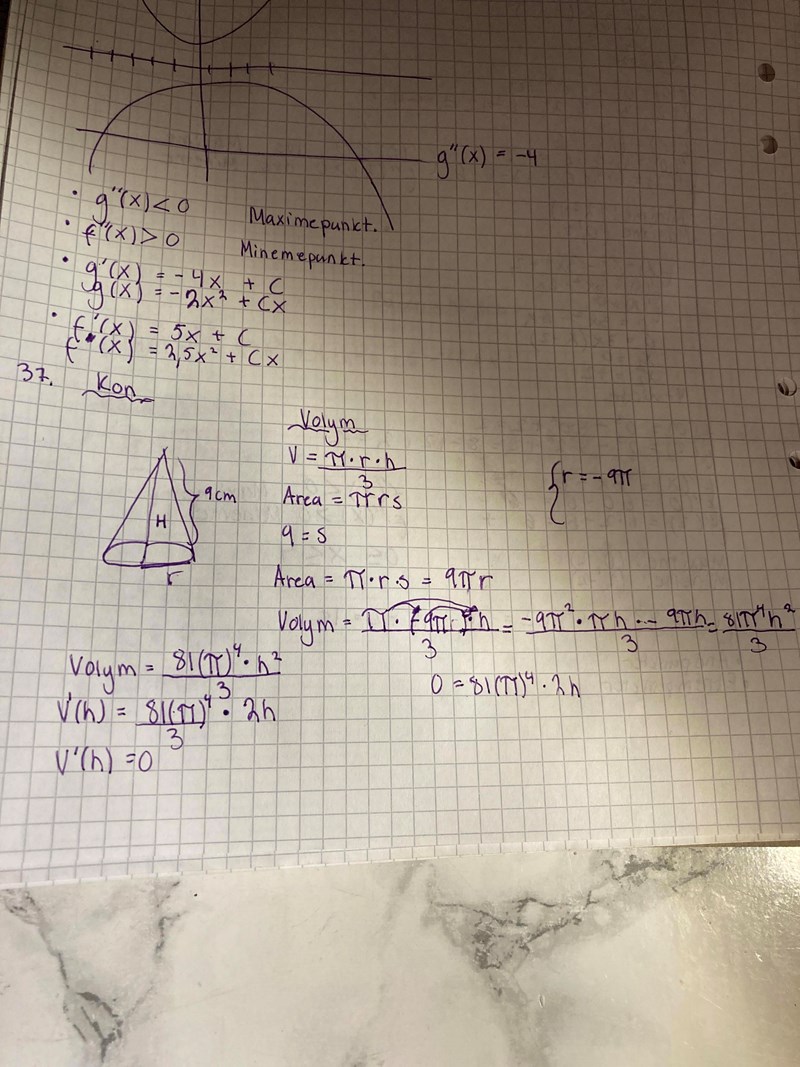 g''(x) = -4
• g''(x) < 0 Maximepunkt.
• f''(x) > 0 Minemepunkt.
• g'(x) = -4x + C
g(x) = -2x² + Cx
• f'(x) = 5x + C
f(x) = 2,5x² + Cx
37. Kon
Volym
V = π·r·h / 3
9cm
H
r
Area = πrs
9 = s
{ r = -9π
Area = π·r·s = 9πr
Volym = π·(-9π·)·h / 3 = -9π²·πh·- 9πh / 3 = 81π⁴h² / 3
Volym = 81(π)⁴·h² / 3
0 = 81(π)⁴·2h
V'(h) = 81(π)⁴ / 3 · 2h
V'(h) = 0